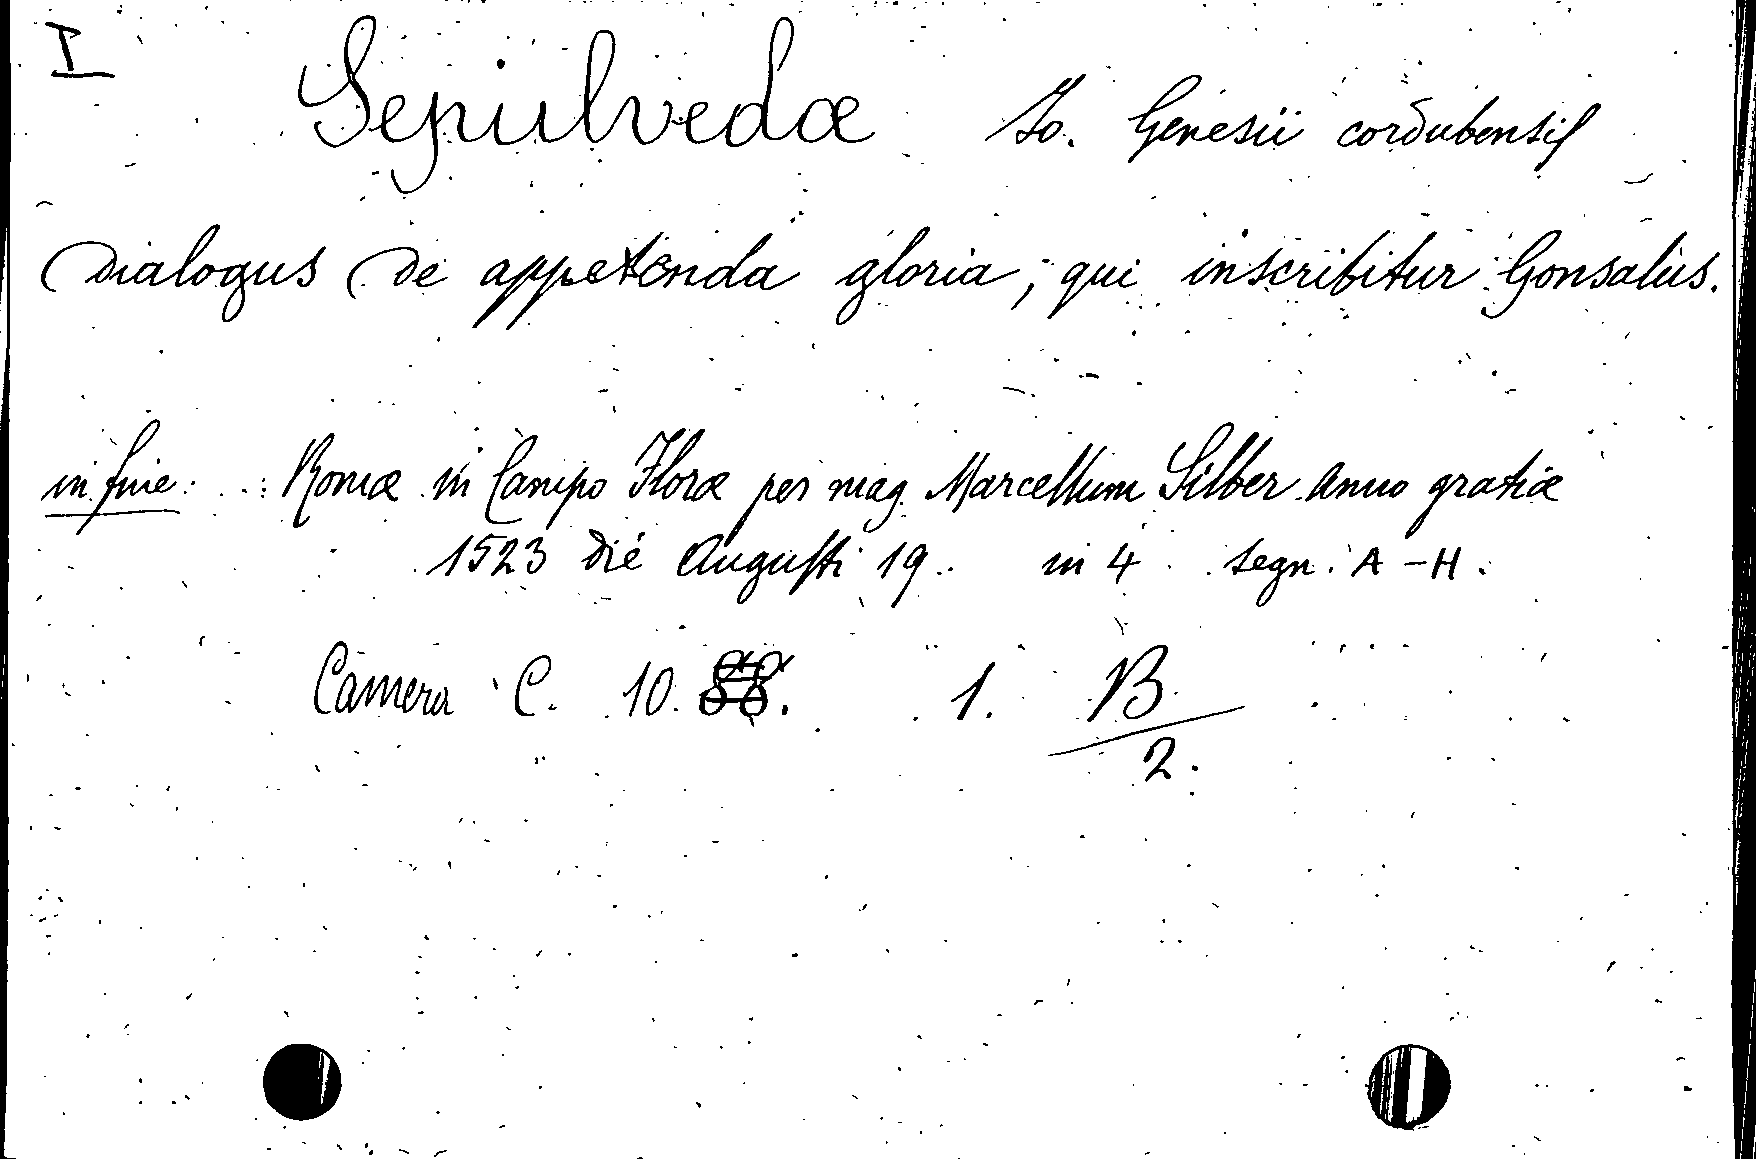 I
Sepulvedæ Jo. Genesii cordubensis
Dialogus de appetenda gloria, qui inscribitur Gonsalus.
in fine: Romæ in Campo Floræ per mag. Marcellum Silber anno gratiæ
1523 die Augusti 19. in 4 segn. A-H.
Camera C. 10. 88. 1. B
2.